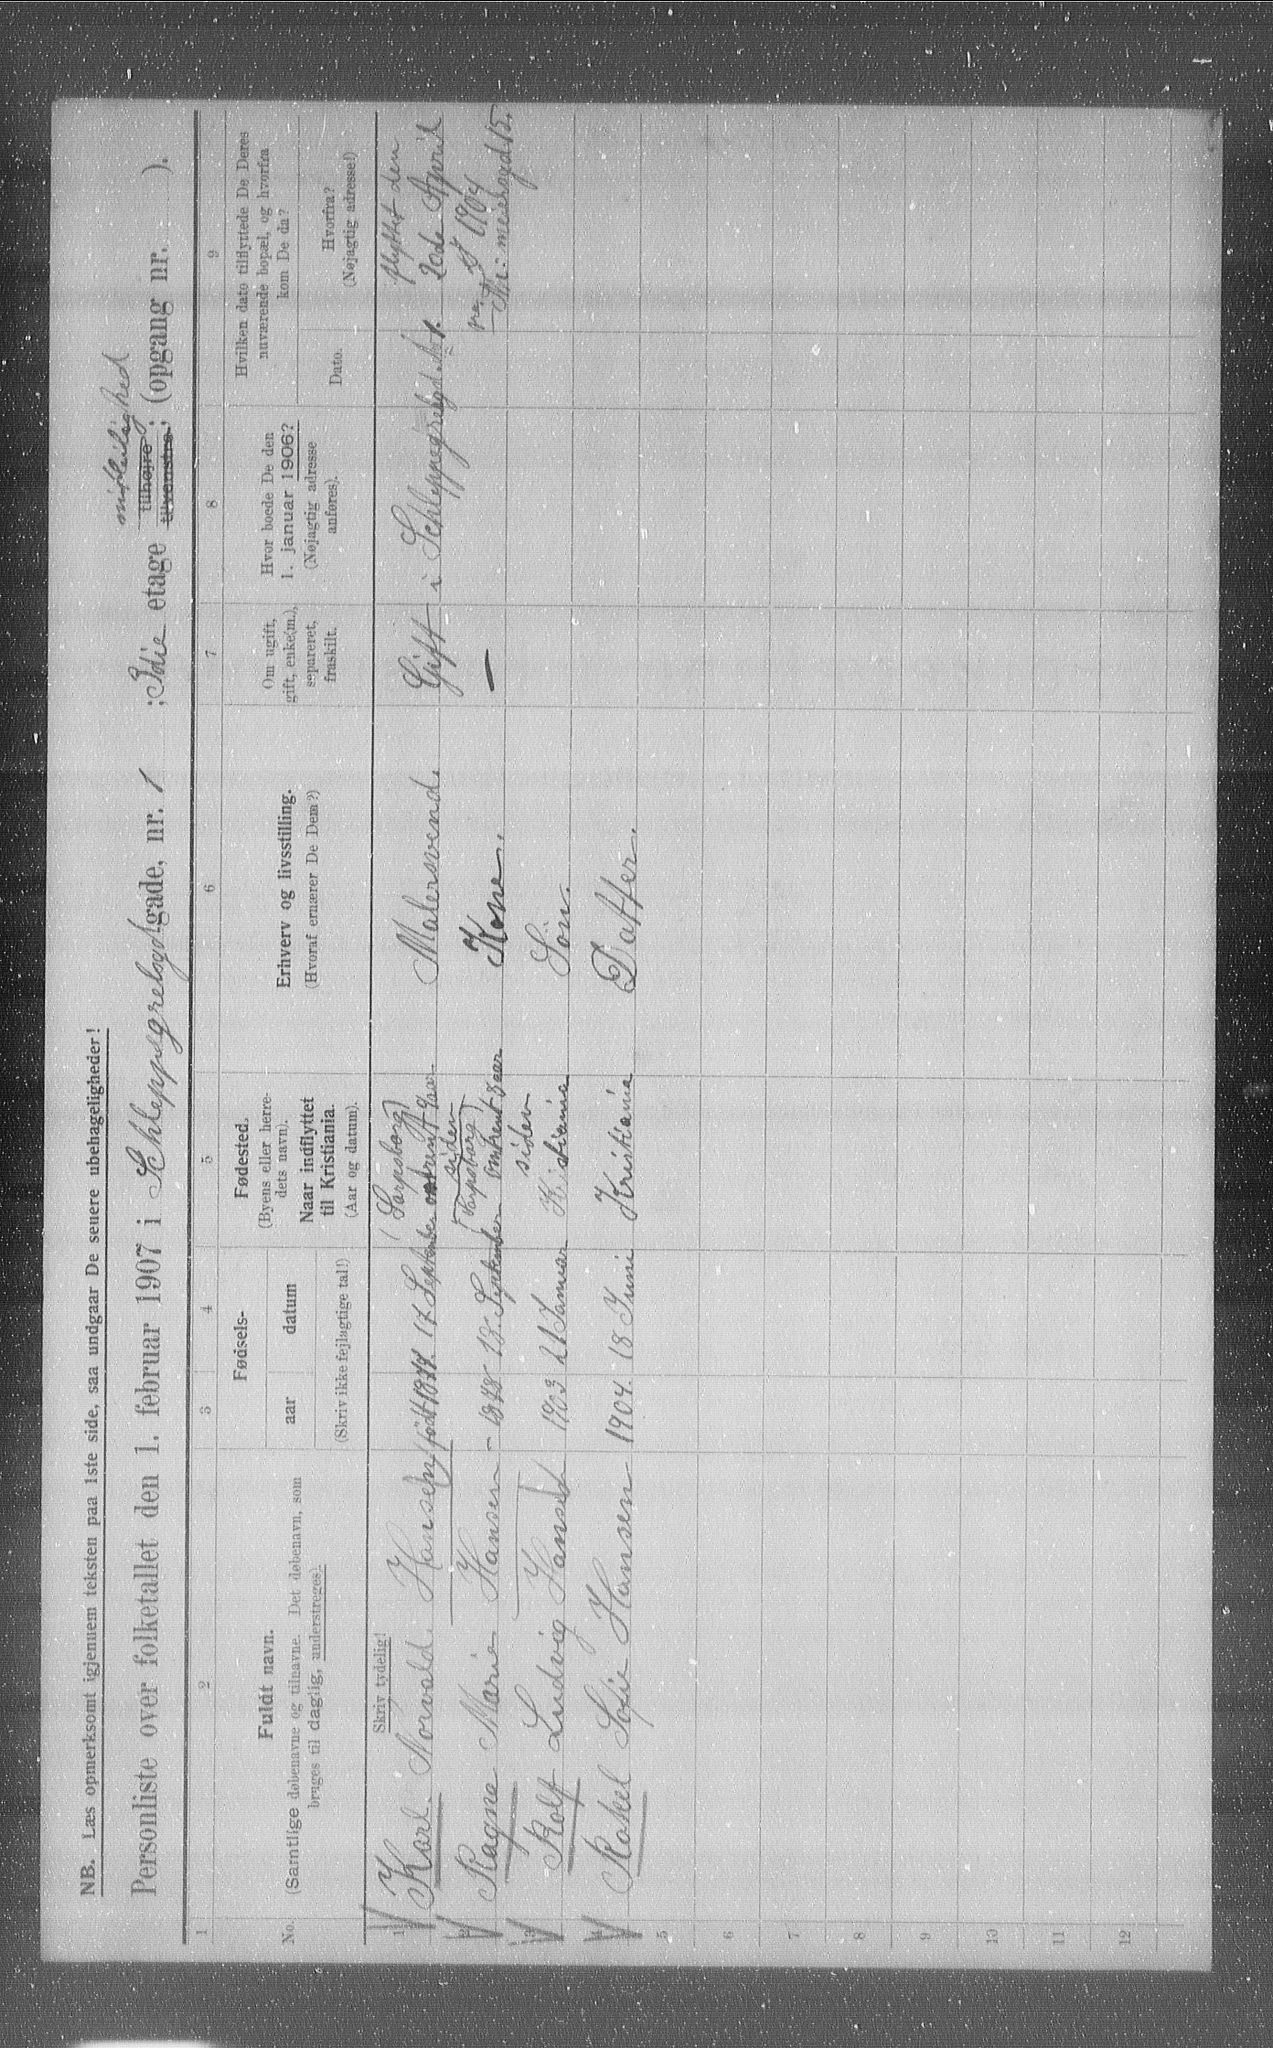 NB. Læs opmerksomt igjennem teksten paa 1ste side, saa undgaar De senere ubehageligheder!
Personliste over folketallet den 1. februar 1907 i Schleppegrelsgd gade, nr. 1 ; 3die etage tilhøjre tilvenstre; (opgang nr. ).
1 2 3 4 5 6 7 8 9
No.
Fuldt navn.
(Samtlige døbenavne og tilnavne. Det døbenavn, som
bruges til daglig, understreges).
Fødsels-
aar datum
(Skriv ikke fejlagtige tal!)
Fødested.
(Byens eller herre-
dets navn).
Naar indflyttet
til Kristiania.
(Aar og datum).
Erhverv og livsstilling.
(Hvoraf ernærer De Dem?)
Om ugift,
gift, enke(m.),
separeret,
fraskilt.
Hvor boede De den
1. januar 1906?
(Nøjagtig adresse
anføres).
Hvilken dato tilflyttede De Deres
nuværende bopæl, og hvorfra
kom De da?
Dato.
Hvorfra?
(Nøjagtig adresse!)
Skriv tydelig!
1 Karl. Norvald. Hansen født 17 September (Sarpsborg) omtrent aar siden Malersvend. Gift i Schleppegrelsgd. No 1. flyttet den 20de April 1904
2 Ragna Marie Hansen - 1878 13 September (Sarpsborg) omtrent 8 aar siden Kone. —
3 Rolf Ludvig Hansen 1903 21 Januar Kristiania Søn.
4 Rakel Sofie Hansen 1904. 18 Juni Kristiania Datter.
5
6
7
8
9
10
11
12